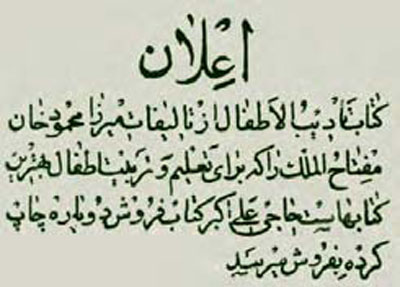 اعلان
کتاب تادیب الاطفال از تالیفات میرزا محمود خان
مفتاح الملک را که برای تعلیم و تربیت اطفال بهترین
کتابهاست حاجی علی اکبر کتاب فروش دوباره چاپ
کرده بفروش میرسد